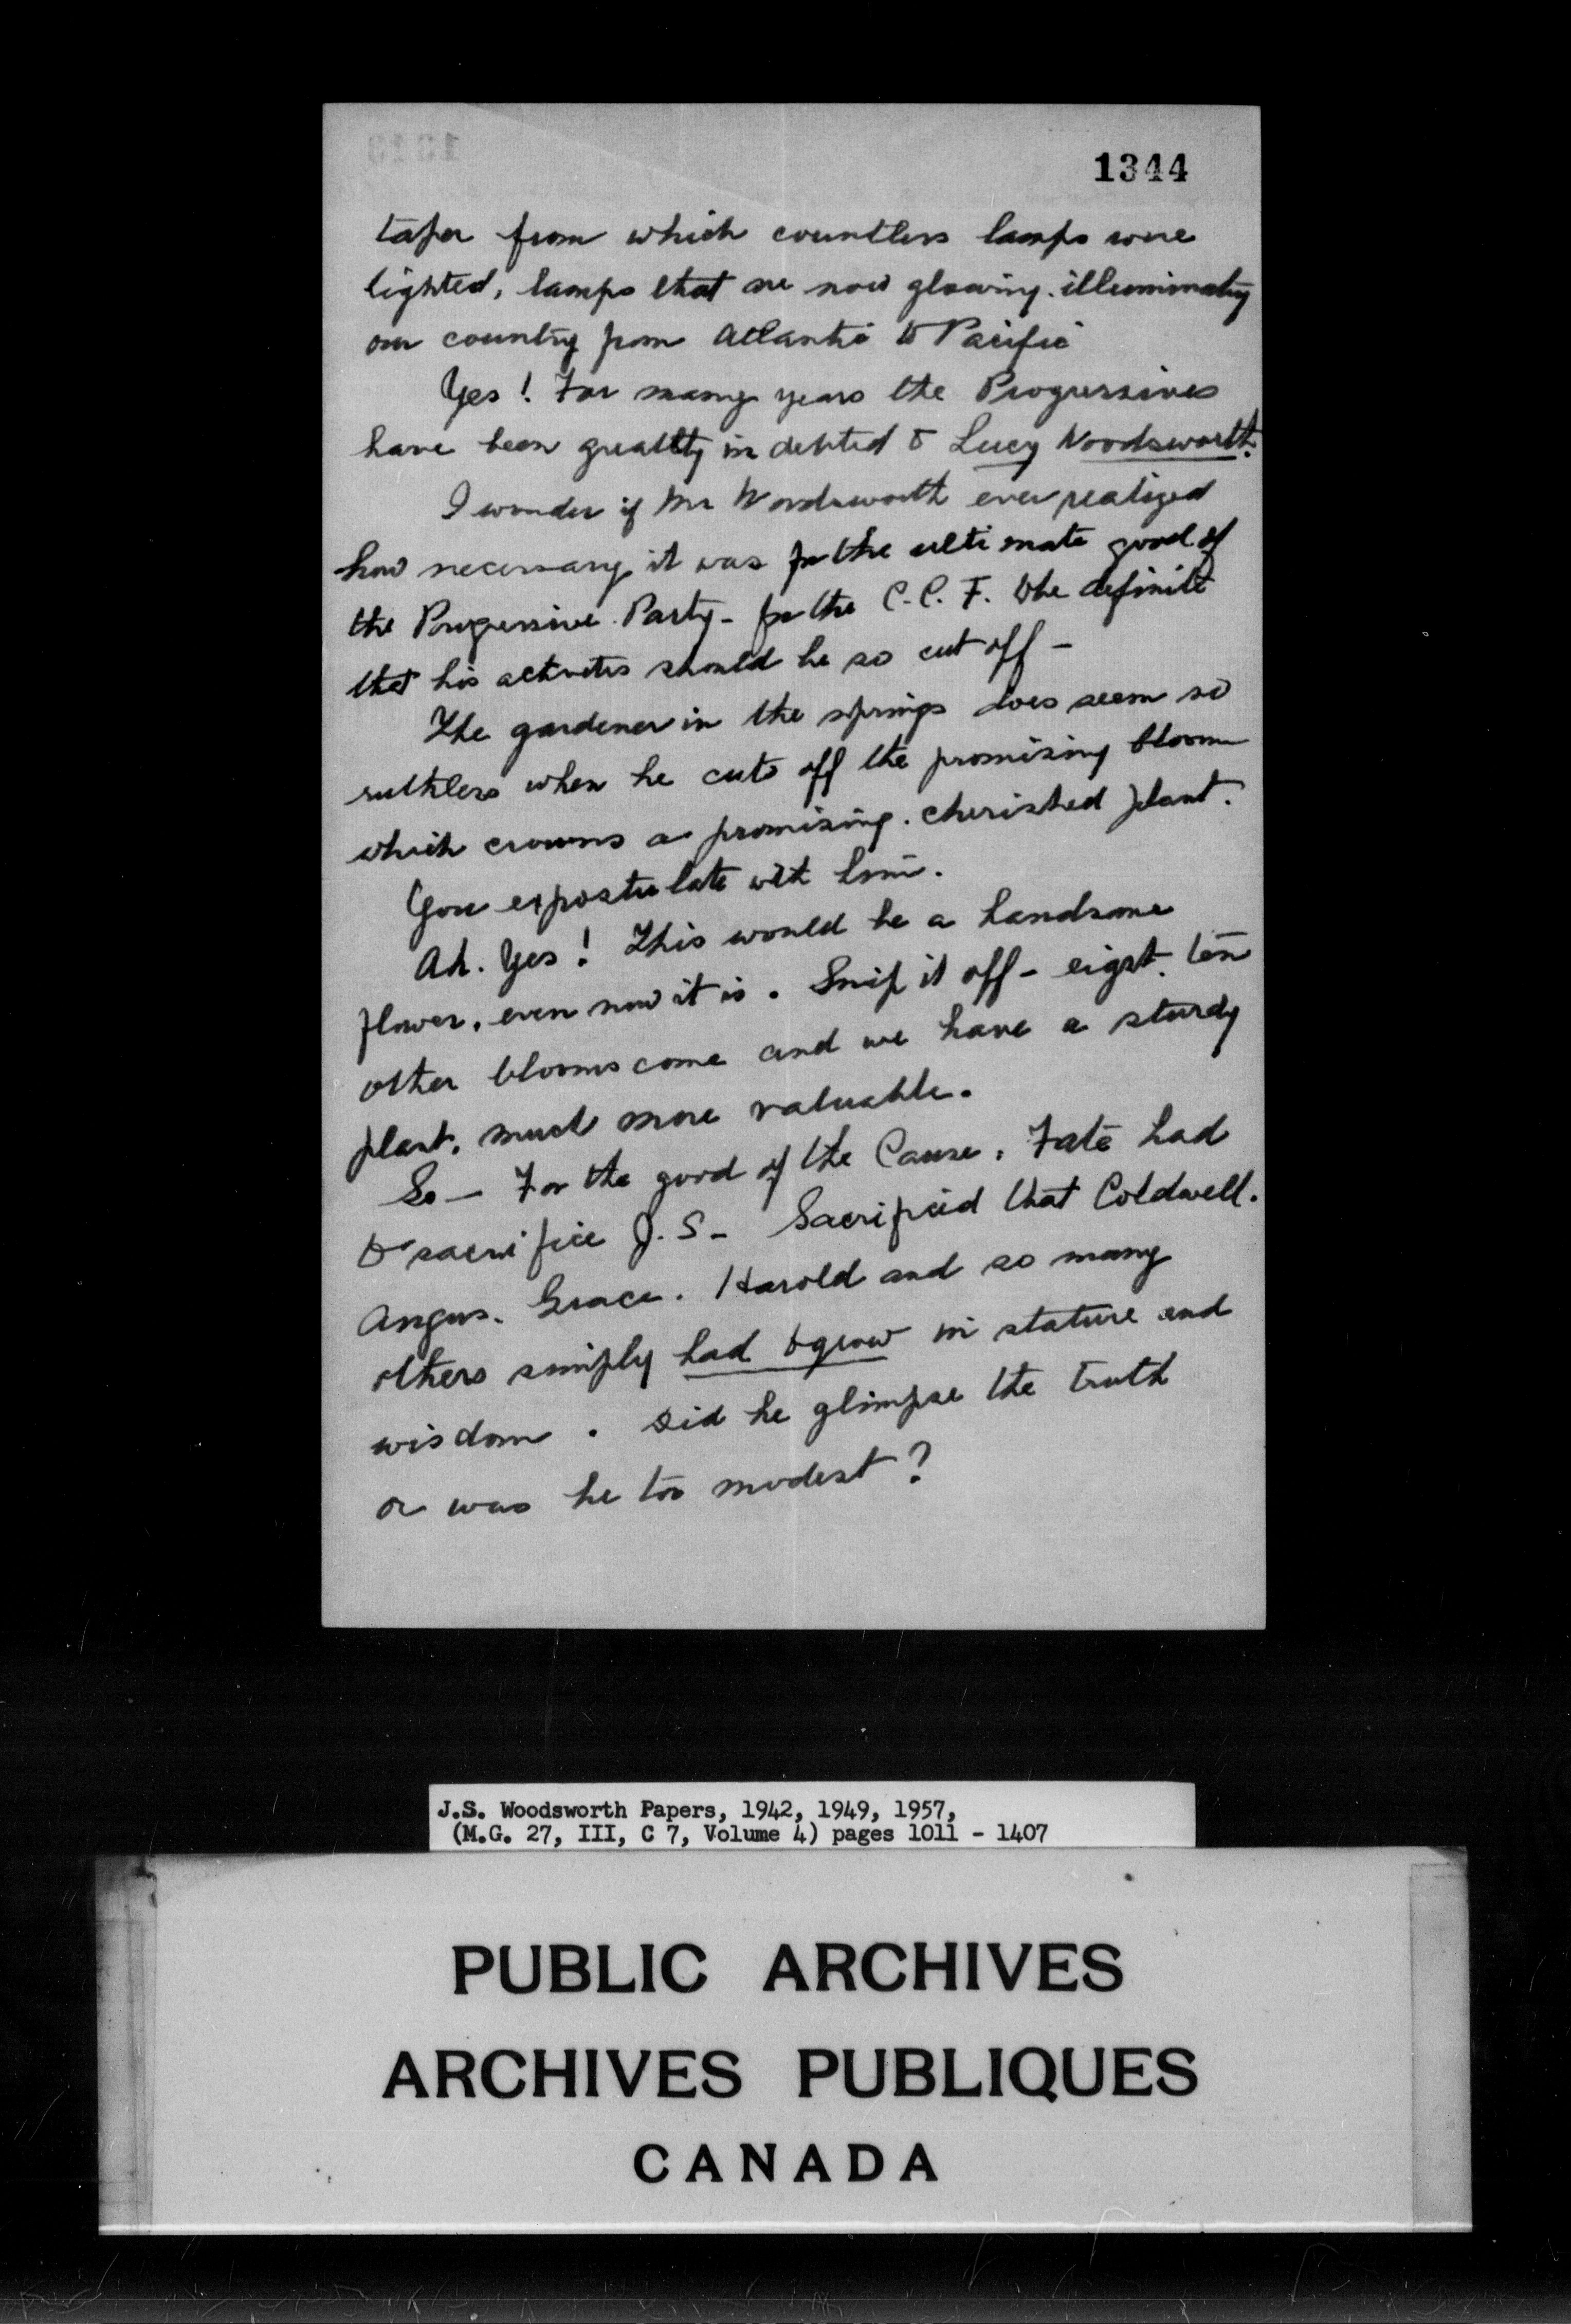 1344
taper from which countless lamps were
lighted, lamps that are now glowing. illuminating
our country from Atlantic to Pacific
Yes! For many years the Progressives
have been greatly in debted to Lucy Woodsworth.
I wonder if Mr Woodsworth ever realized
how necessary it was for the ultimate good of
the Progressive Party - for the C.C.F. to be definite
that his activites should be so cut off -
The gardener in the springs does seem so
ruthless when he cuts off the promising bloom
which crowns a promising. cherished plant.
You expostulate with him.
Ah. Yes! This would be a handsome
flower, even now it is. Snip it off - eight. ten
other blooms come and we have a sturdy
plant, much more valuable.
So - For the good of the Cause, Fate had
to sacrifice J.S - Sacrificed that Coldwell.
Angus. Grace. Harold and so many
others simply had to grow in stature and
wisdom. Did he glimpse the truth
or was he too modest?
J.S. Woodsworth Papers, 1942, 1949, 1957,
(M.G. 27, III, C 7, Volume 4) pages 1011 - 1407
PUBLIC ARCHIVES
ARCHIVES PUBLIQUES
CANADA